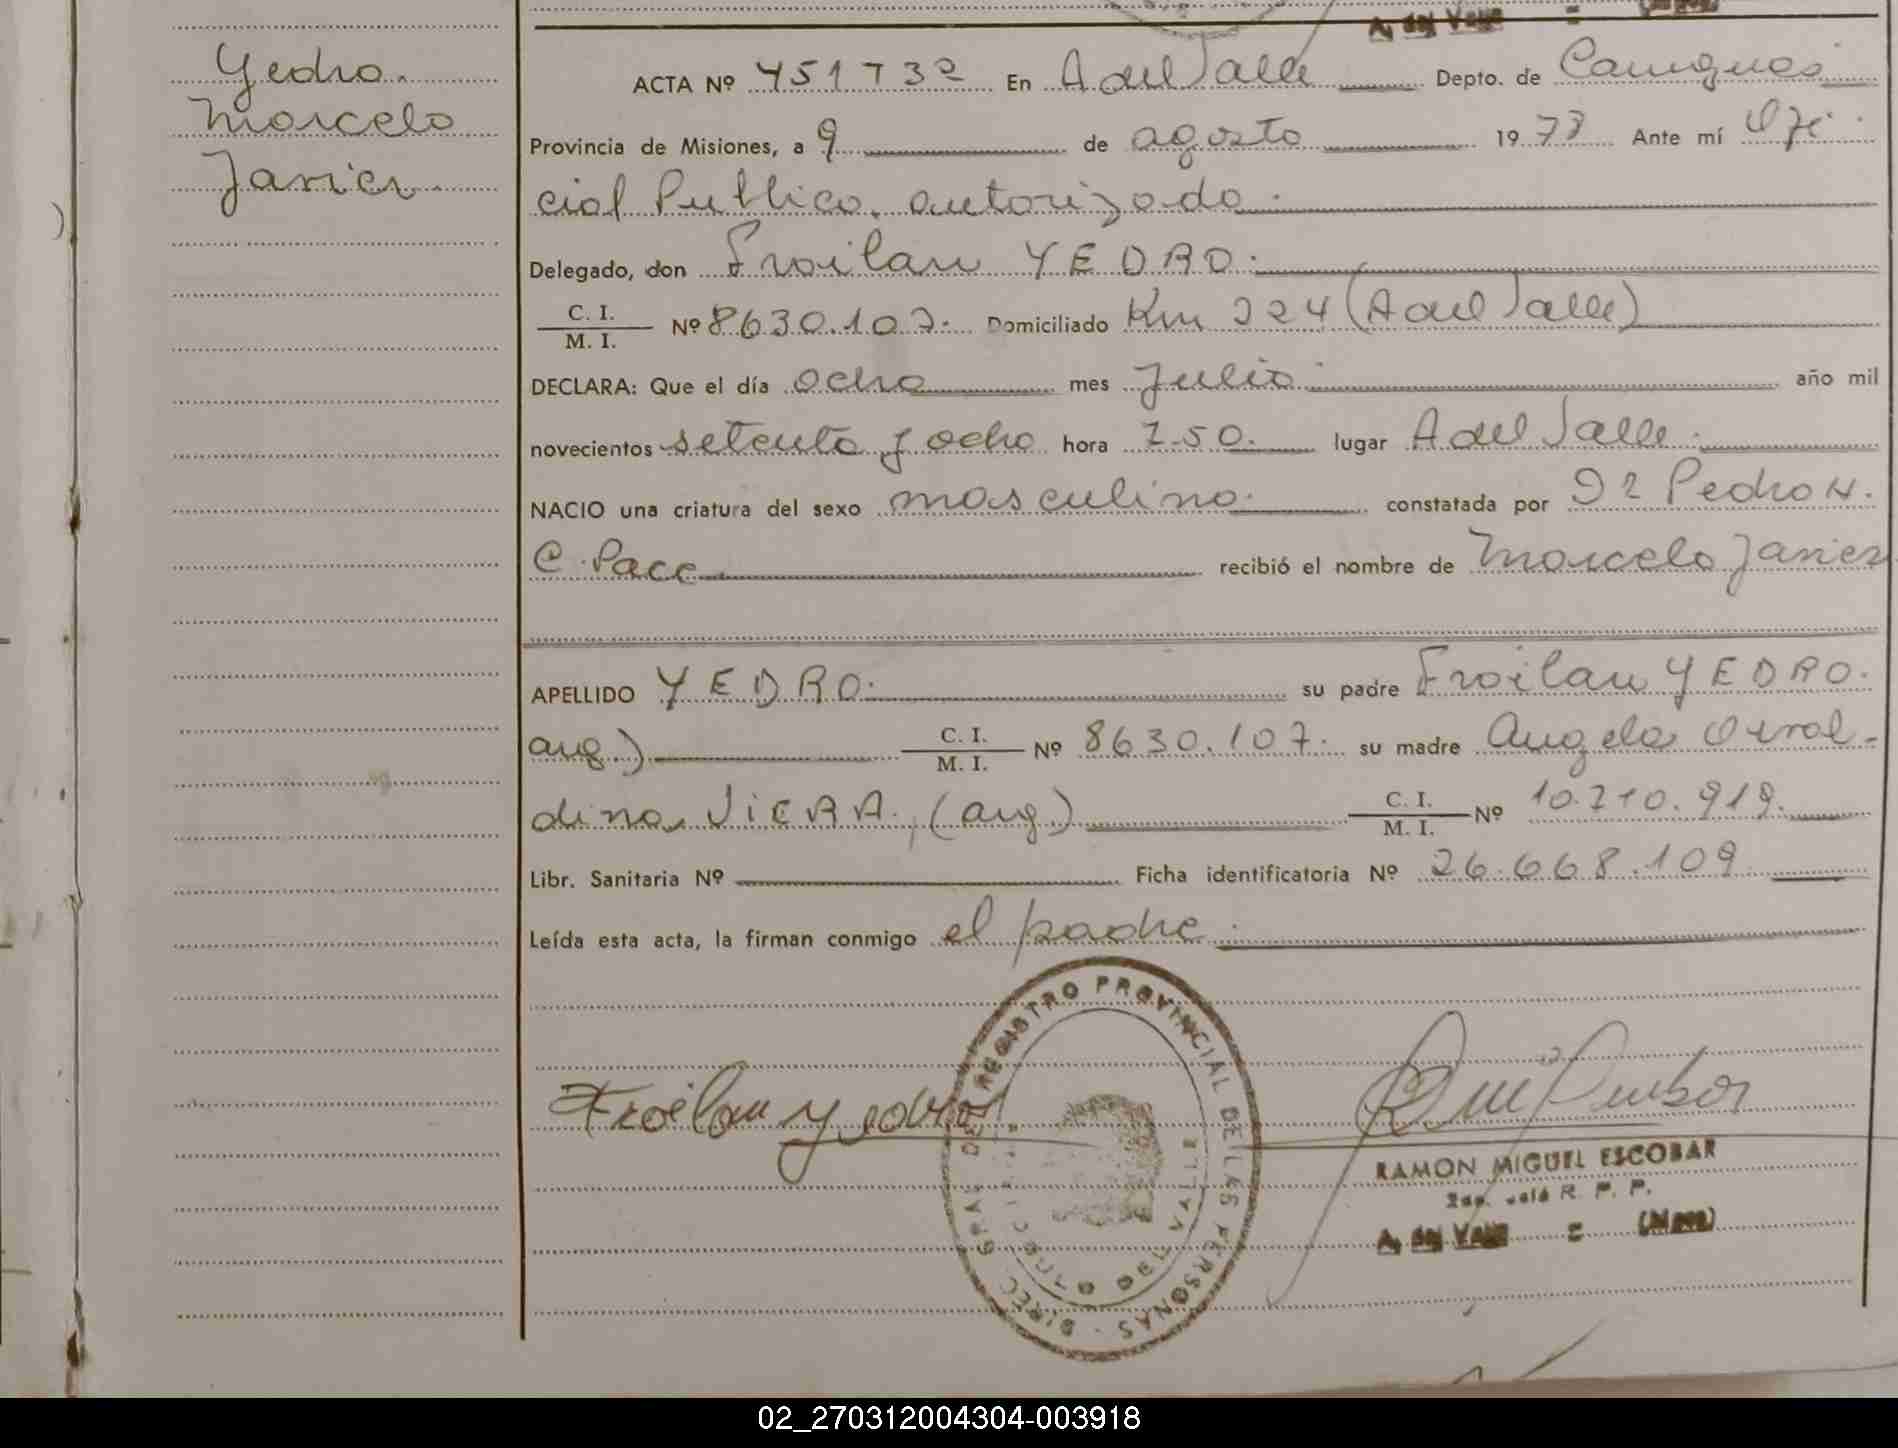 A. del Valle = (Mnes)
Yedro.
Marcelo
Javier.
ACTA Nº 451 T 32 En A del Valle Depto. de Cainguas
Provincia de Misiones, a 9 de agosto 1978 Ante mí Ofi
cial Publico, autorizado.
Delegado, don Froilan YEDRO.
C. I.
M. I. Nº 8630.107. Domiciliado Km 224 (A del Valle)
DECLARA: Que el día ocho mes Julio año mil
novecientos setenta y ocho hora 7.50. lugar A del Valle.
NACIO una criatura del sexo masculino. constatada por Dr Pedro H.
C. Pace recibió el nombre de Marcelo Javier
APELLIDO YEDRO. su padre Froilan YEDRO.
arg.) C. I.
M. I. Nº 8630.107. su madre Angela
dina VIERA, (arg) C. I.
M. I. Nº 10.210.919.
Libr. Sanitaria Nº Ficha identificatoria Nº 26.668.109
Leída esta acta, la firman conmigo el padre.
Froilan yedro
DIREC. GRAL. DE REGISTRO PROVINCIAL DE LAS PERSONAS
DEL VALLE
RAMON MIGUEL ESCOBAR
R. P. P.
A. del Valle = (Mnes)
02_270312004304-003918